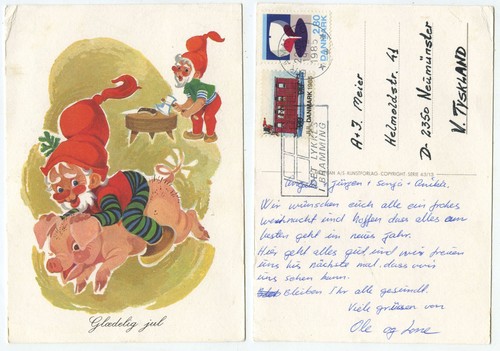 Glædelig jul
2.80
DANMARK
1985
DANMARK 1985
DET LYKKES
I BRAMMING
A+J. Meier
Helmoldstr. 41
D- 2350 Neumünster
V. TYSKLAND
A/S KUNSTFORLAG COPYRIGHT SERIE
Jürgen +
Wir wünschen euch alle ein frohes
weihnacht und hoffen dass alles am
besten geht in neues jahr.
Hier geht alles gut und wir freuen
uns bis nächste mal, dass wir
uns sehen kann.
Bleiben Ihr alle gesund.
Viele grüssen von
Ole og Lone